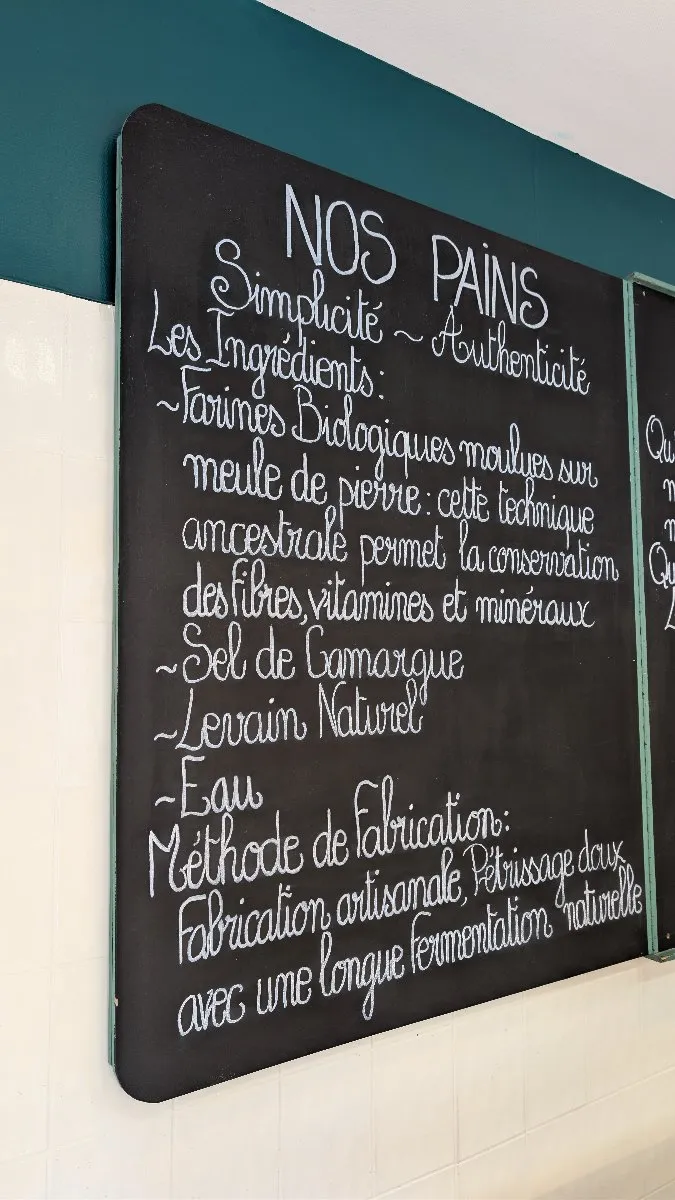 NOS PAiNS
Simplicité ~ Authenticité
Les Ingrédients:
~Farines Biologiques moulues sur
meule de pierre: cette technique
ancestrale permet la conservation
des fibres, vitamines et minéraux
~Sel de Camargue
~Levain Naturel
~Eau
Méthode de Fabrication:
Fabrication artisanale, Pétrissage doux
avec une longue fermentation naturelle